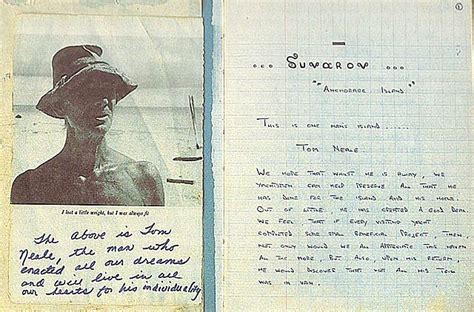 I lost a little weight, but I was always fit
The above is Tom
Neale, the man who
enacted all our dreams
and will live in all
our hearts for his individuality
1
... Suvarov ...
"Anchorage Island"
This is one man's island.....
Tom Neale
We hope that whilst he is away, we
yachtsmen can help preserve all that he
has done for the island and his home.
Out of little, he has created a good deal
We feel that if every visiting yacht
completed some small beneficial project, then
not only would we all appreciate this haven
all the more, but also, upon his return,
he would discover that not all his toil
was in vain.